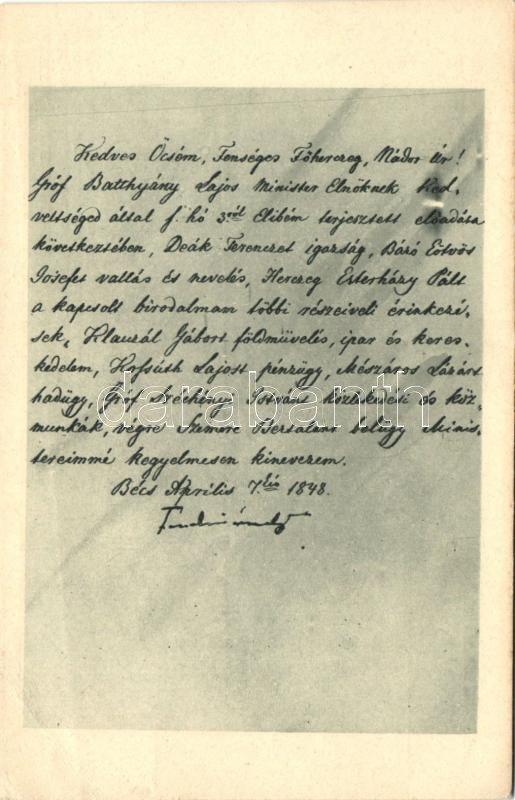 Kedves Öcsém, Fenséges Főherczeg, Nádor Úr!
Gróf Batthyány Lajos Minister Elnöknek Ked-
veltséged által f. hó 3ról Elibém terjesztett előadása
következtében, Deák Ferenczet igazság, Báró Eötvös
Josefet vallás és nevelés, Herczeg Esterházy Pált
a kapcsolt birodalmam többi részeiveli érinkezé-
sek, Klauzál Gábort földművelés, ipar és keres-
kedelem, Kossúth Lajost pénzügy, Mészáros Lázárt
hadügy, Gróf Széchényi Istvánt közlekedési és köz-
munkák, végre Szemere Bertalant belügy Minis-
tereimmé kegyelmesen kinevezem.
Bécs Április 7.én 1848.
Ferdinánd
darabanth